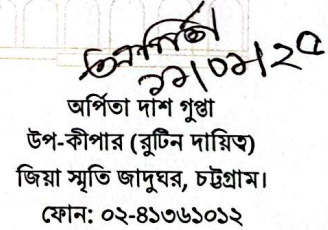 অর্পিতা দাশ গুপ্তা
উপ-কীপার (রুটিন দায়িত্ব)
জিয়া স্মৃতি জাদুঘর, চট্টগ্রাম।
ফোন: ০২-৪১৩৬১০১২